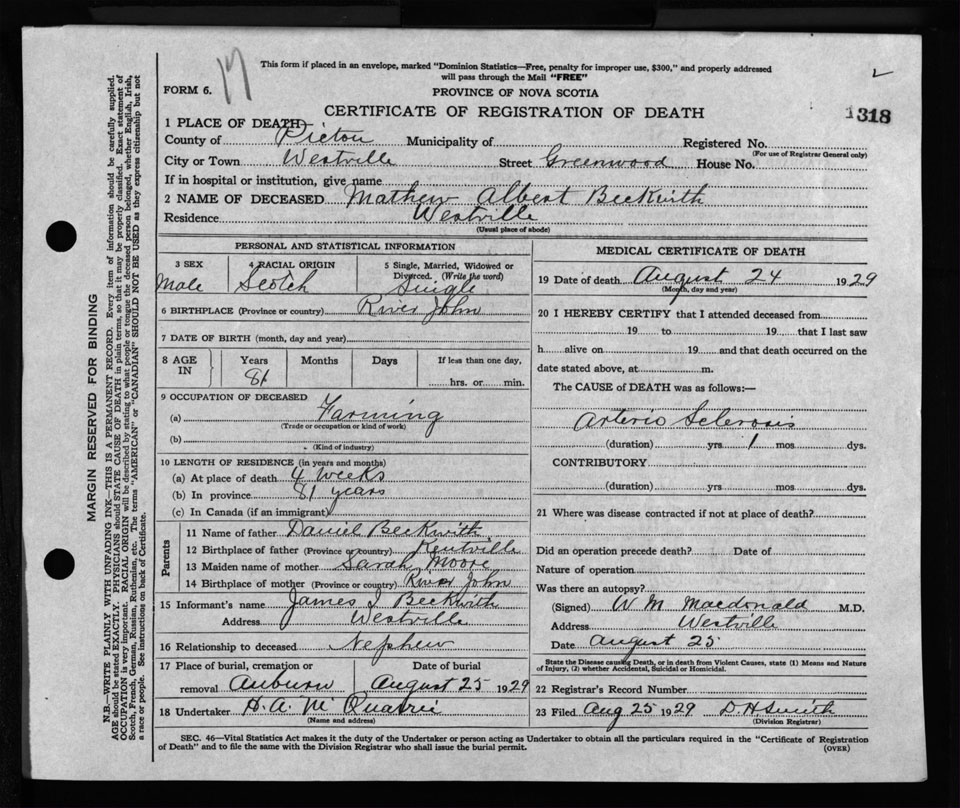 17
This form if placed in an envelope, marked "Dominion Statistics—Free, penalty for improper use, $300," and properly addressed
will pass through the Mail "FREE"
FORM 6.
PROVINCE OF NOVA SCOTIA
CERTIFICATE OF REGISTRATION OF DEATH
1318
1 PLACE OF DEATH
County of Pictou Municipality of Registered No.
(For use of Registrar General only)
City or Town Westville Street Greenwood House No.
If in hospital or institution, give name
2 NAME OF DECEASED Mathew Albert Beckwith
Residence Westville
(Usual place of abode)
MARGIN RESERVED FOR BINDING
N.B.—WRITE PLAINLY WITH UNFADING INK—THIS IS A PERMANENT RECORD. Every item of information should be carefully supplied.
AGE should be stated EXACTLY. PHYSICIANS should STATE CAUSE OF DEATH in plain terms, so that it may be properly classified. Exact statement of
OCCUPATION is very important. RACIAL ORIGIN will be described by stating to what people or tongue the deceased person belonged, whether English, Irish,
Scotch, French, German, Russian, Ruthenian, etc. The terms "AMERICAN" or "CANADIAN" SHOULD NOT BE USED as they express citizenship but not
a race or people. See instructions on back of Certificate.
PERSONAL AND STATISTICAL INFORMATION
3 SEX
Male
4 RACIAL ORIGIN
Scotch
5 Single, Married, Widowed or
Divorced. (Write the word)
Single
6 BIRTHPLACE (Province or country) River John
7 DATE OF BIRTH (month, day and year)
8 AGE IN
Years Months Days If less than one day,
81 hrs. or min.
9 OCCUPATION OF DECEASED
(a) Farming
(Trade or occupation or kind of work)
(b)
(Kind of industry)
10 LENGTH OF RESIDENCE (in years and months)
(a) At place of death 4 weeks
(b) In province 81 years
(c) In Canada (if an immigrant)
Parents
11 Name of father Daniel Beckwith
12 Birthplace of father (Province or country) Kentville
13 Maiden name of mother Sarah Moore
14 Birthplace of mother (Province or country) River John
15 Informant's name James J Beckwith
Address Westville
16 Relationship to deceased Nephew
17 Place of burial, cremation or Date of burial
removal Auburn August 25 1929
18 Undertaker H. A. McQuarrie
(Name and address)
MEDICAL CERTIFICATE OF DEATH
19 Date of death August 24 1929
(Month, day and year)
20 I HEREBY CERTIFY that I attended deceased from
19 to 19 that I last saw
h alive on 19 and that death occurred on the
date stated above, at m.
The CAUSE of DEATH was as follows:—
Arterio Sclerosis
(duration) yrs 1 mos dys.
CONTRIBUTORY
(duration) yrs. mos. dys.
21 Where was disease contracted if not at place of death?
Did an operation precede death? Date of
Nature of operation
Was there an autopsy?
(Signed) W M Macdonald M.D.
Address Westville
Date August 25
State the Disease causing Death, or in death from Violent Causes, state (1) Means and Nature
of Injury, (2) whether Accidental, Suicidal or Homicidal.
22 Registrar's Record Number
23 Filed Aug 25 1929 D. H Smith
(Division Registrar)
SEC. 46—Vital Statistics Act makes it the duty of the Undertaker or person acting as Undertaker to obtain all the particulars required in the "Certificate of Registration
of Death" and to file the same with the Division Registrar who shall issue the burial permit.
(OVER)